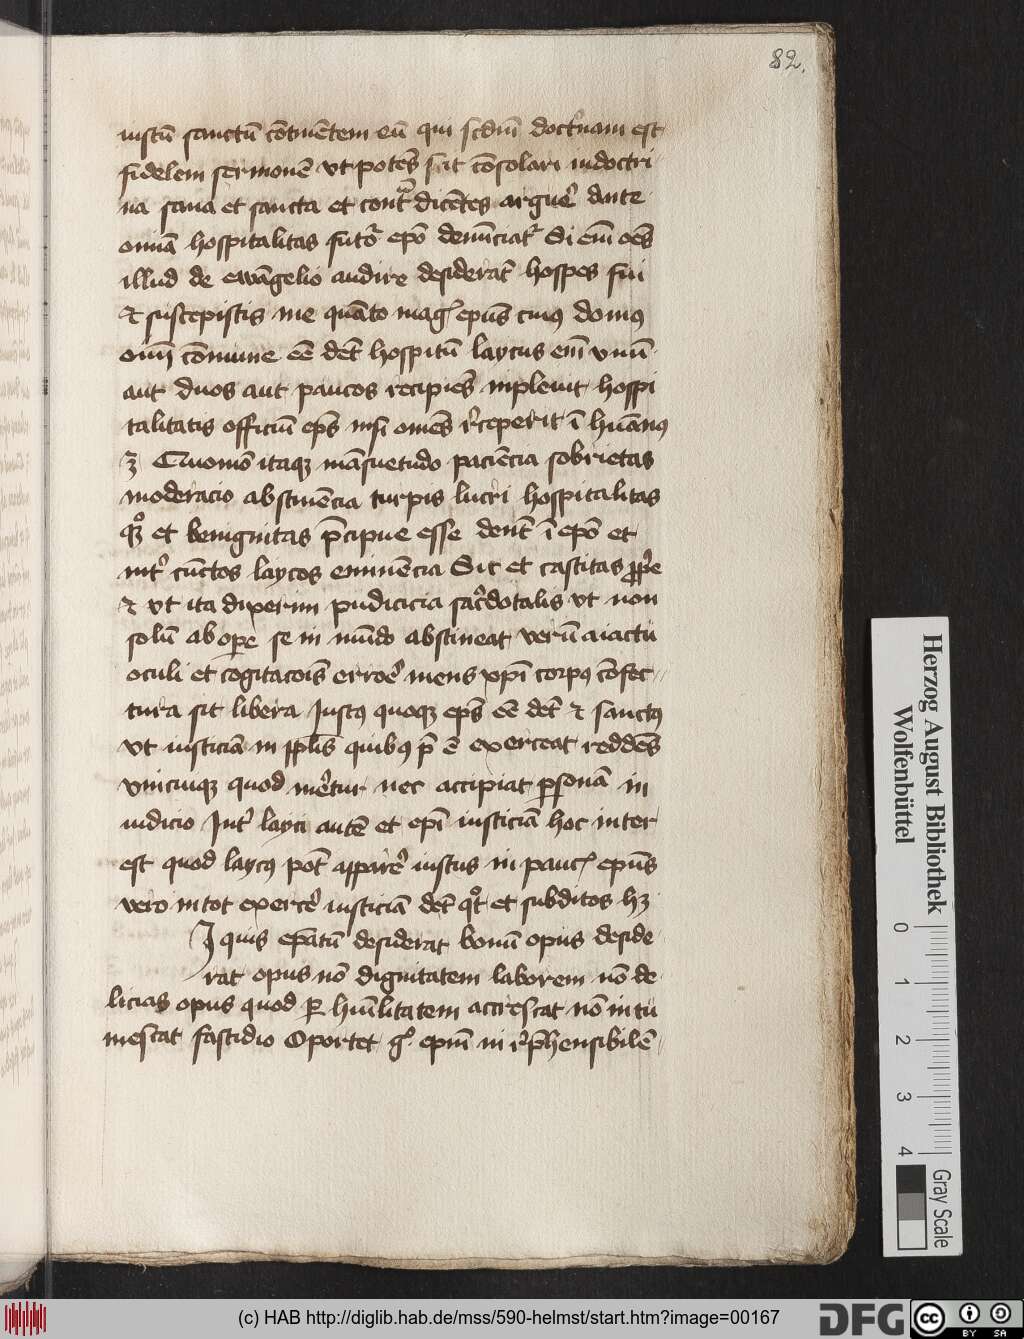 82.
iustū sanctū cōtinētem eū qui scdm̄ doctͥnam est
fidelem sermonē vt potēs sit cōsolari in doctri
na sana et sancta et contͣ dicētes arguer̄ Ante
omīa hospitalitas futo᷑ epo̅ denūciat᷑ Si em̄ oēs
illud de ewāgelio audire desiderāt hospes fui
et suscepistis me quāto magꝭ epūs cuiꝰ domus
oīm cōmune eē debꝫ hospitiū laycus em̄ vnū
aut duos aut paucos recipiēs inpleuit hospi
talitatis officiū ep̄s nisi omēs r̄ceperit ī hūanus
ē Quomō itaqꝫ māsuetudo paciēcia sobrietas
moderacio abstinēcia turpis lucri hospitalitas
qꝫ et benignitas p̄cipue esse debēt ī epo̅ et
int̄ cūctos laycos eminēcia Sic et castitas ꝓpͥe
et vt ita dixerim pudicicia sac̄dotalis vt non
solū ab ope se in mūdo abstineat verū a iactu
oculi et cogitacōis errore mens xp̄i corpꝰ cōfec
tura sit libera Iustꝰ quoqꝫ ep̄s eē debꝫ et sanctꝰ
vt iusticiā in pplīs quibꝰ p̄ ē exerceat reddēs
vnicuiqꝫ quod mēretur nec accipiat psonā in
iudicio Int̄ layci autē et epī iusticiā hoc inter
est quod laycꝰ pōt apparēr iustus in paucꝭ epūs
vero in tot exercēr iusticiā debꝫ qͦt et subditos hꝫ
I quis epatū desiderat bonū opus deside
rat opus nō dignitatem laborem nō de
licias opus quod per hūilitatem accrescat nō intu
mescat fastidio Oportet gͦ epm̄ in r̄p̄hensibilē
Herzog August Bibliothek
Wolfenbüttel
0 1 2 3 4
Gray Scale
(c) HAB http://diglib.hab.de/mss/590-helmst/start.htm?image=00167
DFG cc BY SA